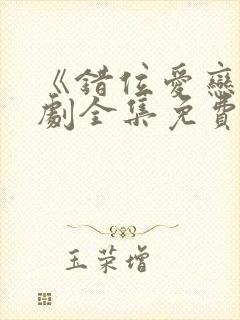 《错位爱恋
剧全集免费
王荣增